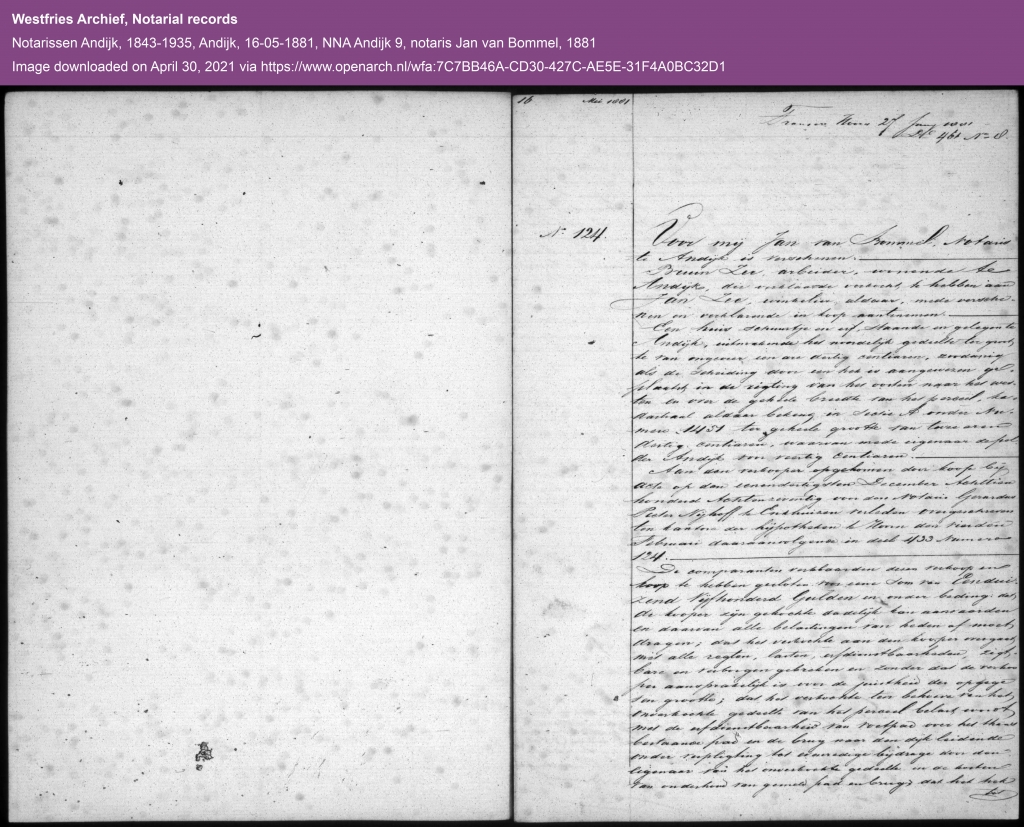 Westfries Archief, Notarial records
Notarissen Andijk, 1843-1935, Andijk, 16-05-1881, NNA Andijk 9, notaris Jan van Bommel, 1881
Image downloaded on April 30, 2021 via https://www.openarch.nl/wfa:7C7BB46A-CD30-427C-AE5E-31F4A0BC32D1
16 Mei 1881
Hoorn 27 1881
Dl 461 No 8
No 124.
Voor mij Jan van Bommel, Notaris
te Andijk is verschenen.
arbeider, wonende te
Andijk, die verklaarde verkocht te hebben aan
Jan aldaar, mede versche-
nen en verklarende in koop aantenemen.
Een huis schuurtje en erf staande en gelegen te
Andijk, uitmakende het noordelijk gedeelte ter groot
te van ongeveer een are dertig centiaren, zoodanig
als de scheiding door een hek is aangewezen ge-
plaatst in de rigting van het oosten naar het wes-
ten en over de geheele breedte van het perceel, ka-
dastraal aldaar bekend in Sectie A onder Num-
mer 1451 ter geheele grootte van twee aren
dertig centiaren, waarvan mede eigenaar de pol
der Andijk voor veertig centiaren.
Aan den verkooper opgekomen door koop bij
acte op den eenendertigsten December Achttien
honderd Achtenzeventig voor den Notaris Gerardus
Pieter Nijhoff te Enkhuizen verleden overgeschreven
ten kantore der hypotheken te Hoorn den vierden
Februari daaraanvolgende in deel 433 Numero
124.
De comparanten verklaarden dezen verkoop en
koop te hebben gesloten voor eene Som van Eendui-
zend Vijfhonderd Gulden en onder beding: dat
de kooper zijn gekochte dadelijk kan aanvaarden
en daarvan alle belastingen van heden af moet
dragen; dat het verkochte aan den kooper overgaat
met alle regten, lasten, erfdienstbaarheden, zigt-
bare en verborgen gebreken en zonder dat de verkoo
per aansprakelijk is voor de juistheid der opgege
ven grootte; dat het verkochte ten behoeve van het
onverkochte gedeelte van het perceel belast wordt
met de erfdienstbaarheid van voetpad over het thans
bestaande pad en de brug naar den dijk leidende
onder verpligting tot evenredige bijdrage door den
eigenaar van het onverkochte gedeelte in de kosten
van onderhoud van gemeld pad en brug; dat het hek